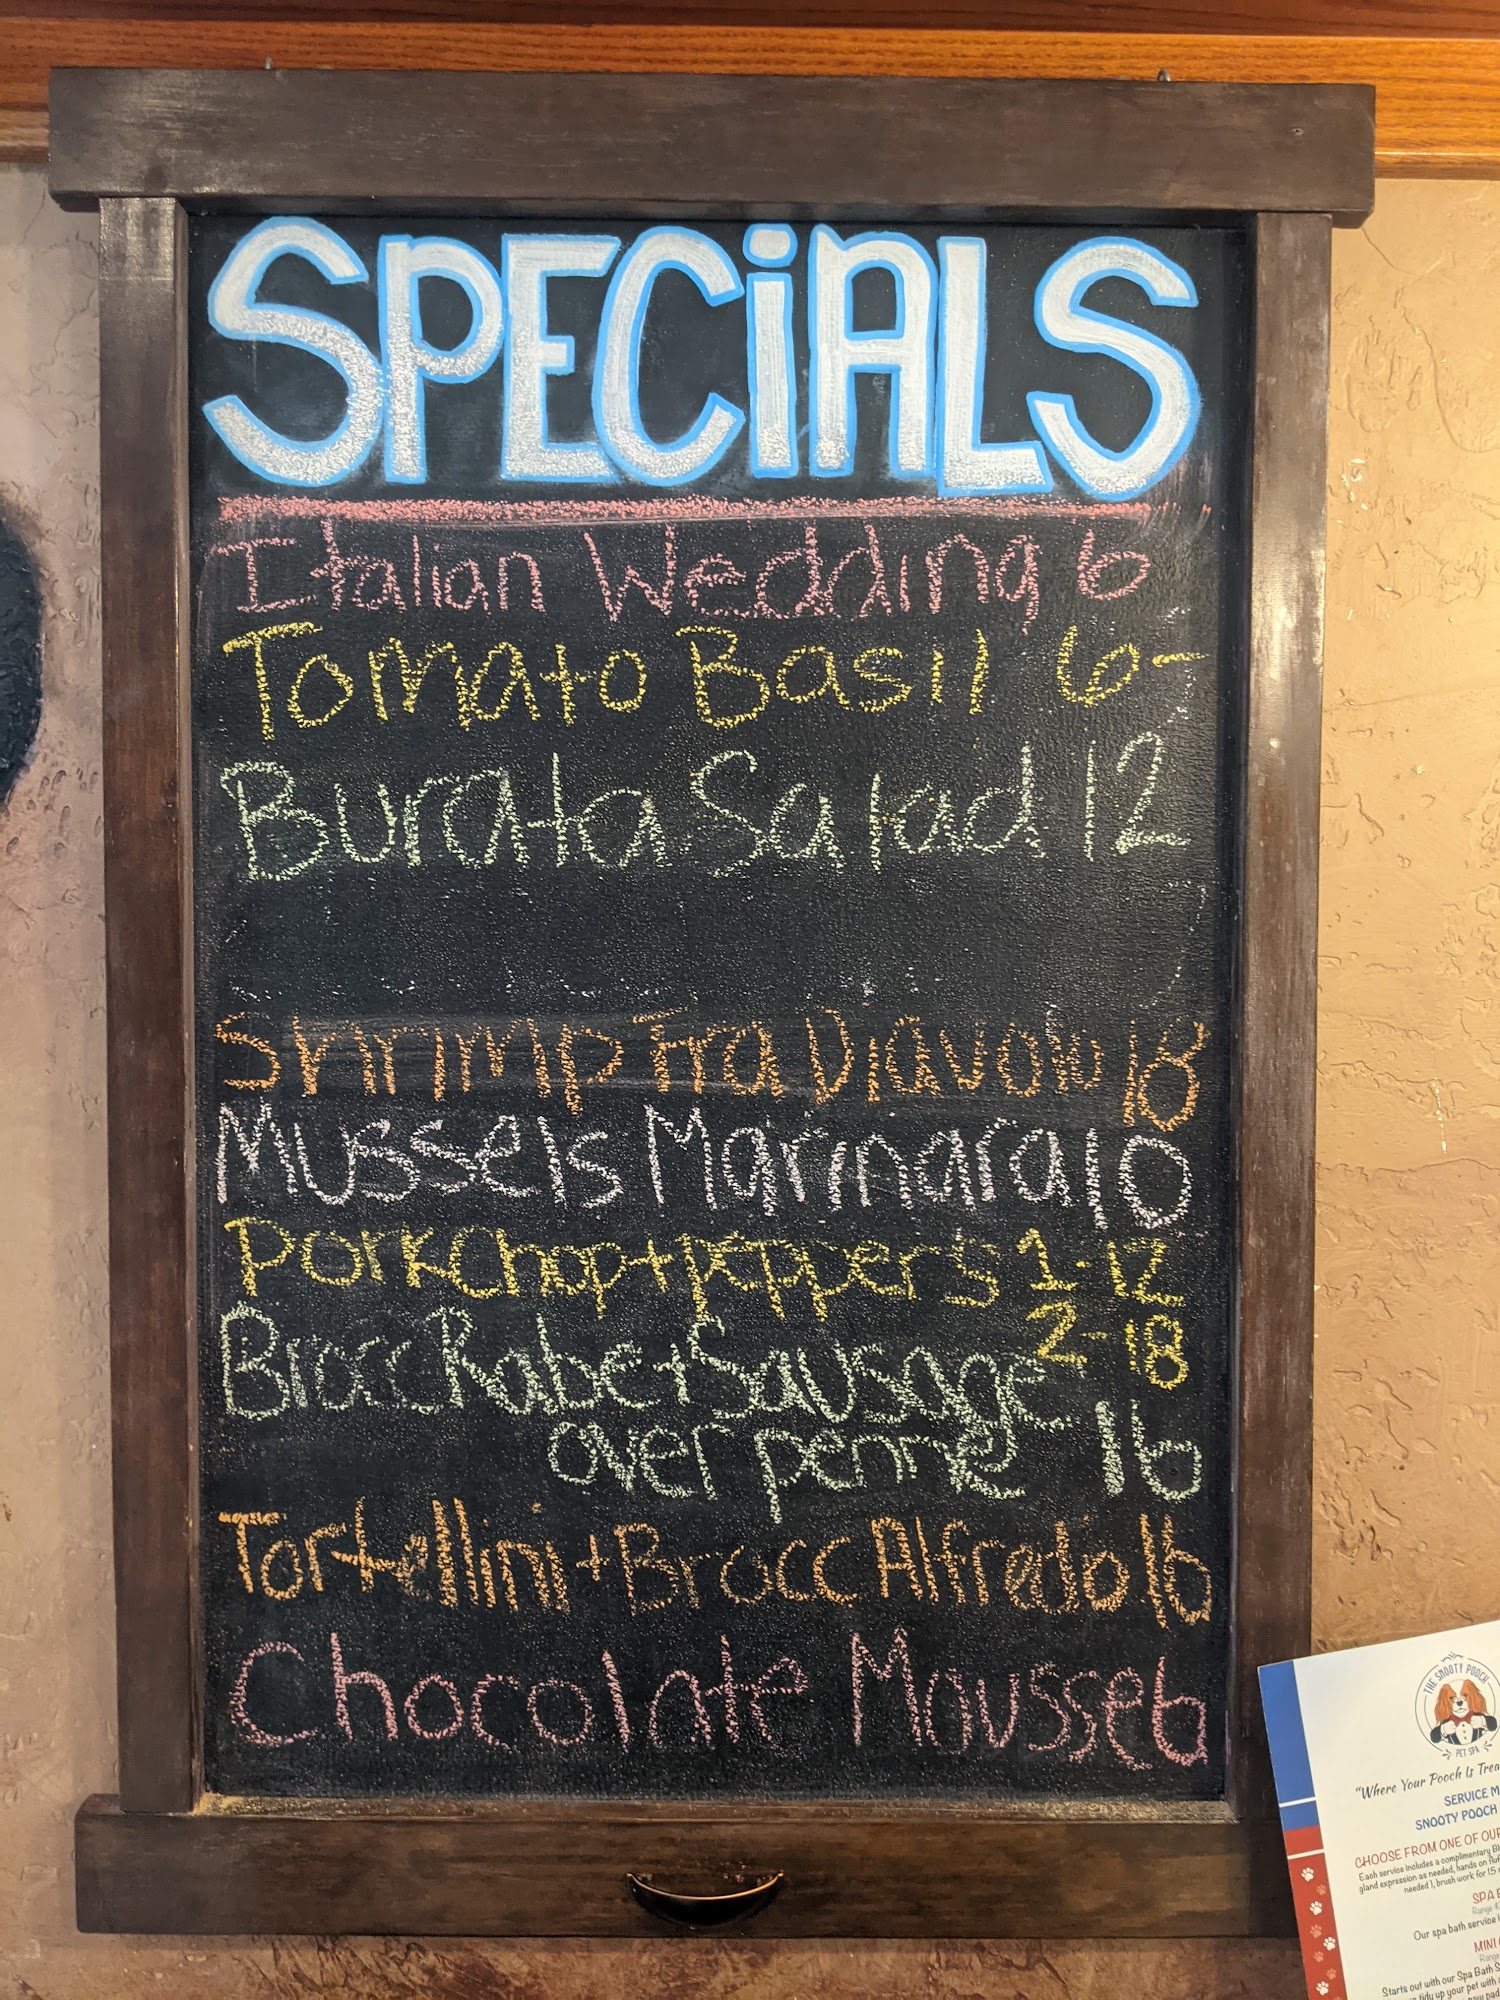 SPECiALS
Italian Wedding 6
Tomato Basil 6-
Burata Salad 12
Shrimp Fra Diavolo 18
Mussels Marinara 10
Pork Chop + peppers 1-12
2-18
Brocc Rabe + Sausage
over penne 16
Tortellini + Brocc Alfredo 16
Chocolate Mousse 6
THE SNOOTY POOCH
PET SPA
"Where Your Pooch Is Trea
SERVICE M
SNOOTY POOCH
CHOOSE FROM ONE OF OUR
Each service includes a complimentary Bl
gland expression as needed, hands on fluf
needed), brush work for 15
SPA B
Range
Our spa bath service
MINI
Range
Starts out with our Spa Bath S
tidy up your pet with
paw pad